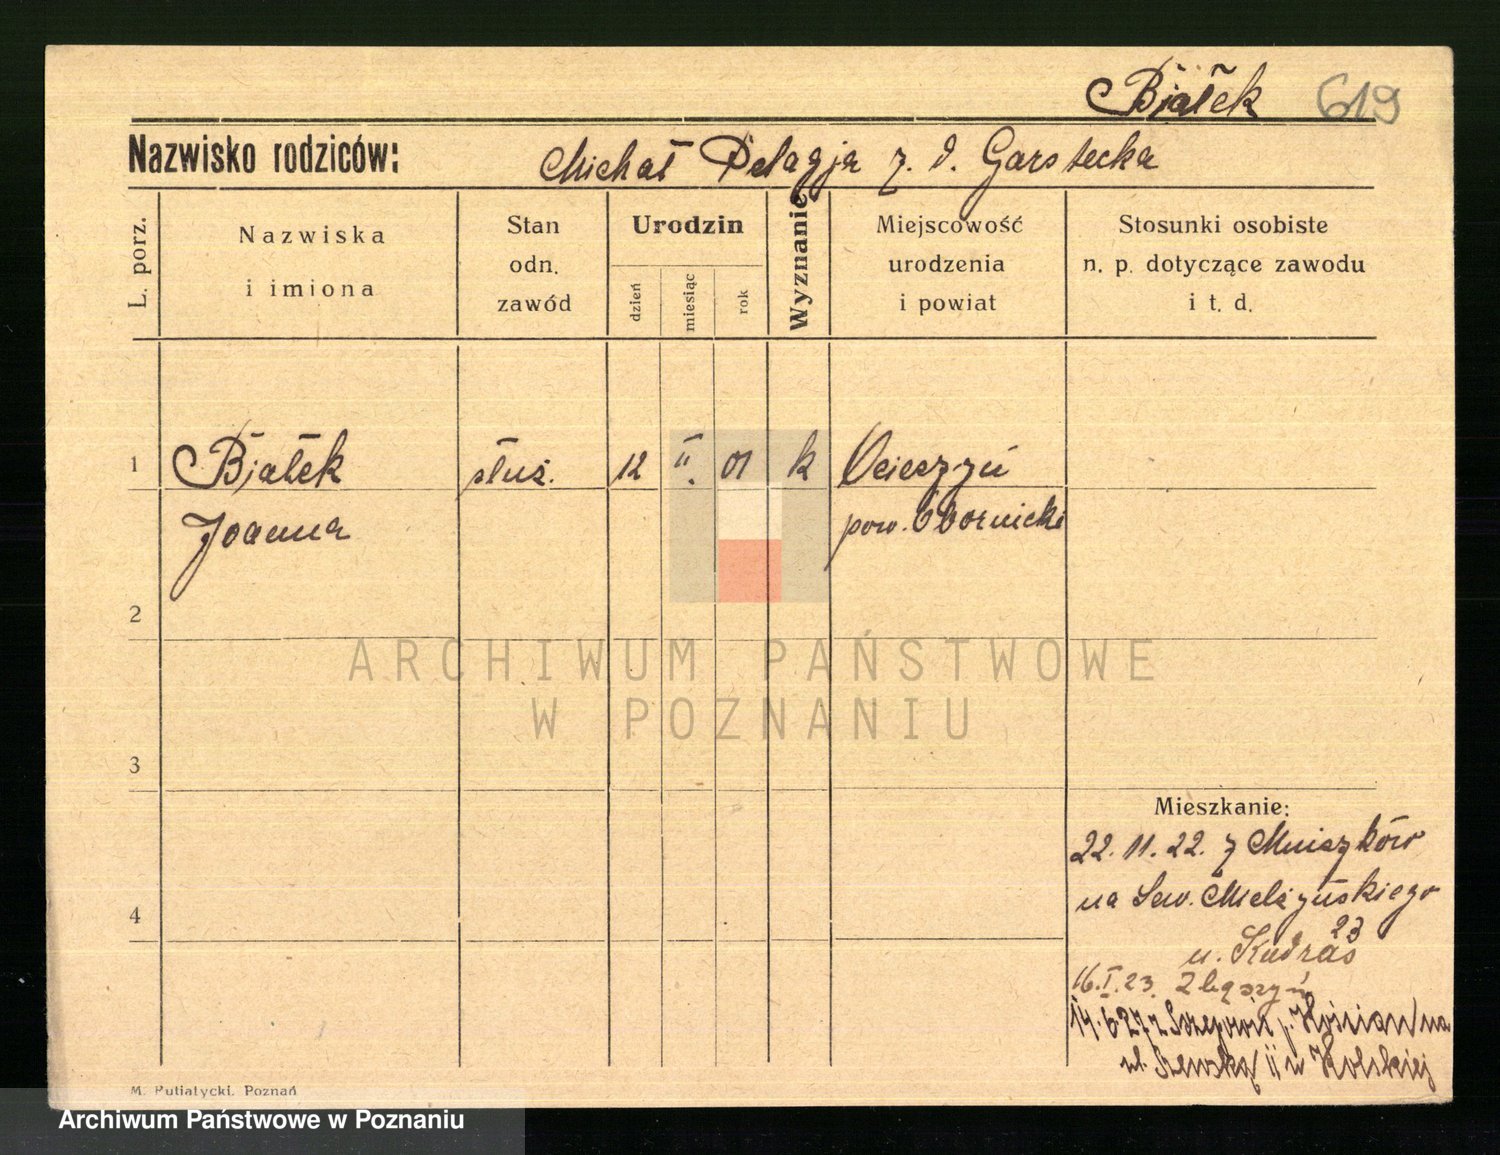 Białek 619
Nazwisko rodziców: Michał Pelagja z. d. Garstecka
L. porz.
Nazwiska
i imiona
Stan
odn.
zawód
Urodzin
dzień
miesiąc
rok
Wyznanie
Miejscowość
urodzenia
i powiat
Stosunki osobiste
n. p. dotyczące zawodu
i t. d.
1 Białek służ. 12 II. 01 k Ocieszyń
Joanna pow. Obornicki
2
ARCHIWUM PAŃSTWOWE
W POZNANIU
3
Mieszkanie:
22. 11. 22. z Mniszków
4
na Sew. Mielżyńskiego
23
u. Kudras
16.I.23. Zbąszyń
14.6.27 z p. Kościan na
ul. Szewską 11 u Kolskiej
M. Putiatycki, Poznań
Archiwum Państwowe w Poznaniu